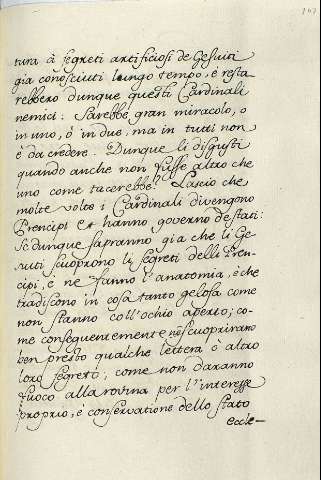 147
tura à segreti artificiosi de Gesuiti
gia conosciuti lungo tempo, è resta
rebbero dunque questi Cardinali
nemici: Sarebbe gran miracolo, o
in uno, ò in due, ma in tutti non
è da credere. Dunque li disgusti
quando anche non fusse altro che
uno come tacerebbe? Lascio che
molte volte i Cardinali divengono
Prencipi et hanno governo de stati:
Se dunque sapranno gia che li Ge
suiti scuoprono li segreti delli Pren-
cipi, e ne fanno l'anatomia, è che
tradiscono in cosa tanto gelosa come
non stanno coll'ochio aperto; co-
me conseguentemente nõ scuopriranno
ben presto qualche lettera è altro
loro segreto; come non daranno
fuoco alla rovina per l'interesse
proprio, è conservatione dello stato
eccle-